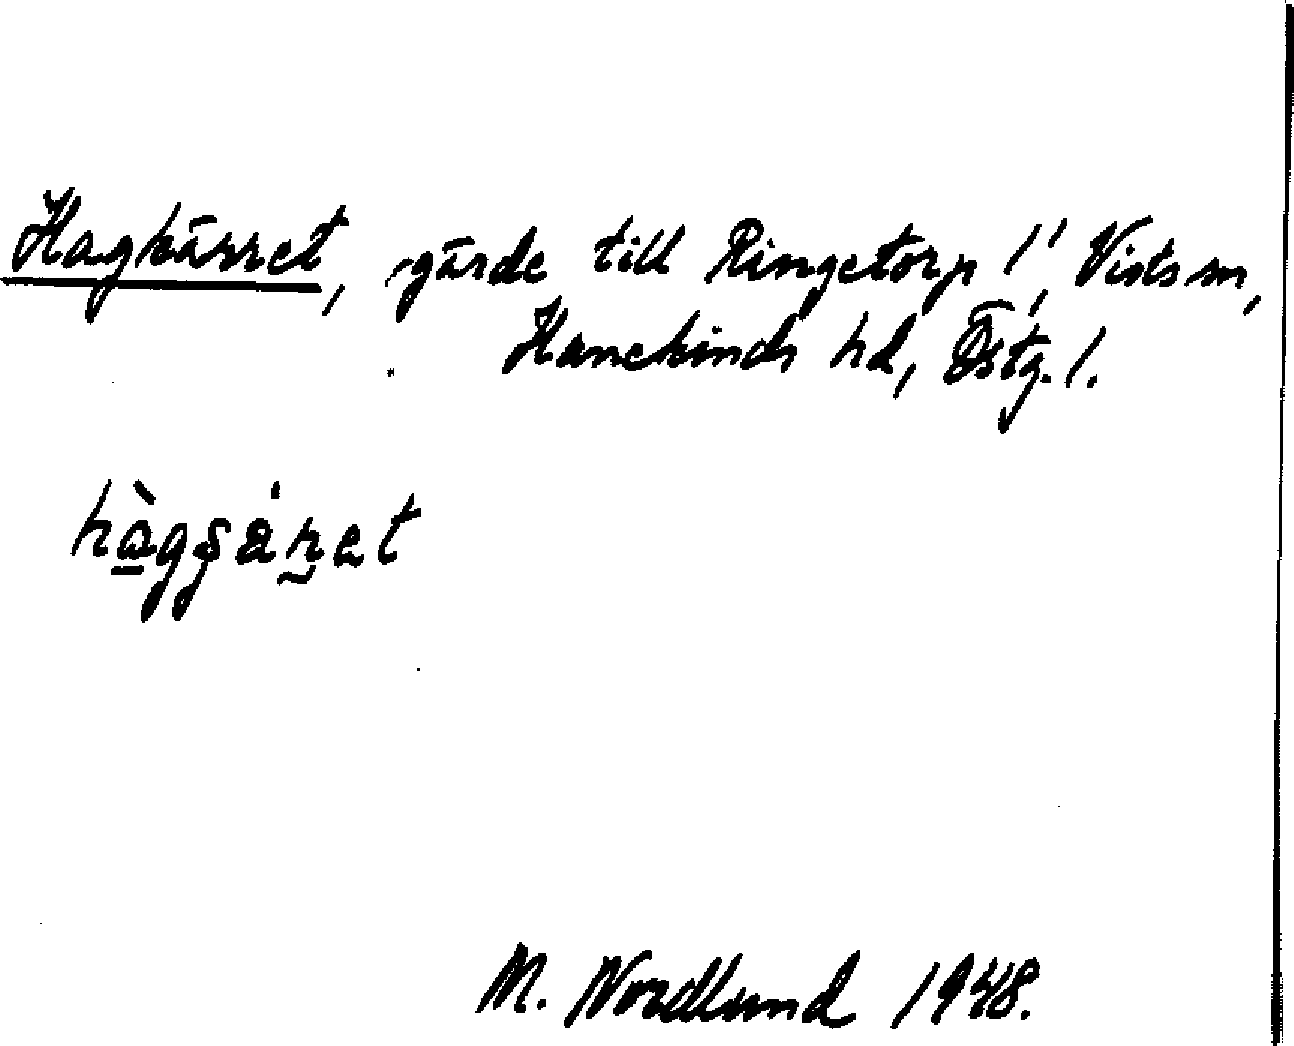 Hagkärret, gärde till Ringetorp 1¹, Vists sn,
Hanekinds hd, Östg. l.
hàgʂá̈ret
M. Nordlund 1948.